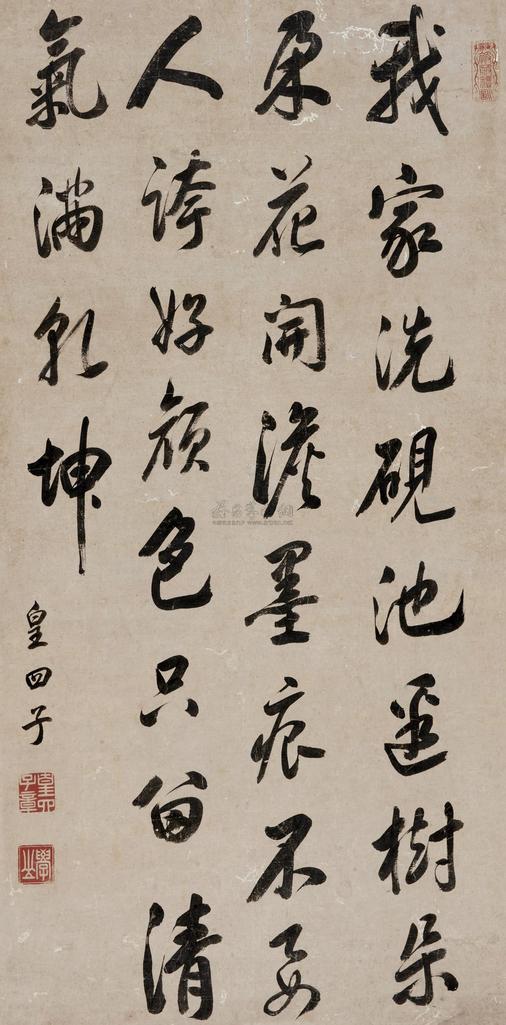 我家洗硯池邊樹朵
朵花開淡墨痕不要
人誇好顏色只留清
氣滿乾坤
皇四子
皇四子章